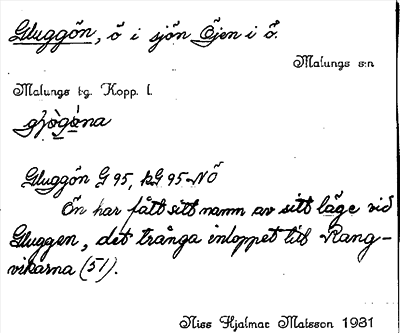 Gluggön, ö i sjön Öjen i ö.
Malungs s:n
Malungs tg. Kopp. l.
Gluggön G 95, kG 95-NÖ
Ön har fått sitt namn av sitt läge vid
Gluggen, det trånga inloppet till Rang-
vikarna (51).
Niss Hjalmar Matsson 1931